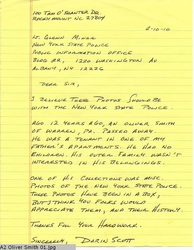 100 TAM O'SHANTER DR.
ROCKY MOUNT NC 27804
2-10-10
LT. GLENN MINER
NEW YORK STATE POLICE
PUBLIC INFORMATION OFFICE
BLDG 22, 1220 WASHINGTON AV
ALBANY, N.Y. 12226
DEAR SIR,
I BELIEVE THESE PHOTOS SHOULD BE
WITH THE NEW YORK STATE POLICE.
AGO 12 YEARS AGO, AN OLIVER SMITH
OF WARREN, PA. PASSED AWAY.
HE WAS A TENANT IN ONE OF MY
FAMILY'S APARTMENTS. HE HAD NO
CHILDREN. HIS OUTER FAMILY WASN'T
INTERESTED IN HIS BELONGINGS.
ONE OF HIS COLLECTIONS WAS MISC.
PHOTOS OF THE NEW YORK STATE POLICE.
THESE PHOTOS HAVE BEEN IN A BOX,
BUT I THINK YOU FOLKS WOULD
APPRECIATE THEM, AND THEIR HISTORY.
THANKS FOR YOUR HARDWORK
SINCERELY, DARIN SCOTT
A2 Oliver Smith 01.jpg